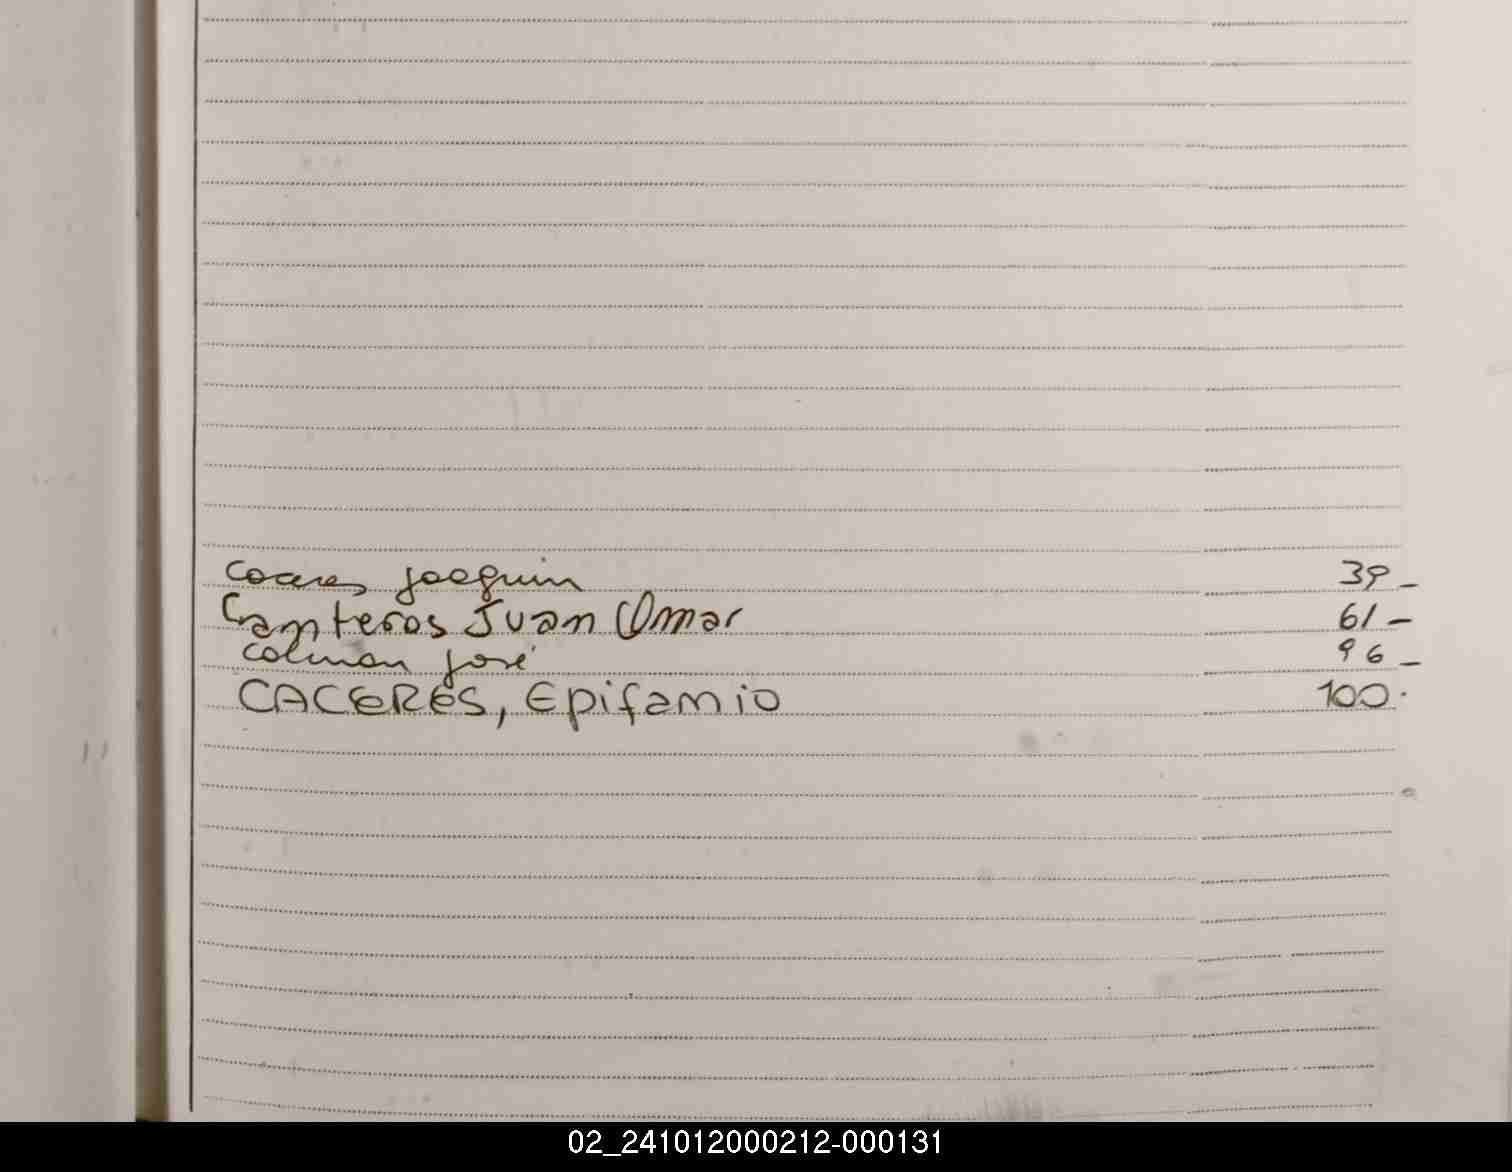 Caceres Joaquin 39_
Canteros Juan Omar 61_
Colman José 96_
CACERES, Epifanio 100.
02_241012000212-000131